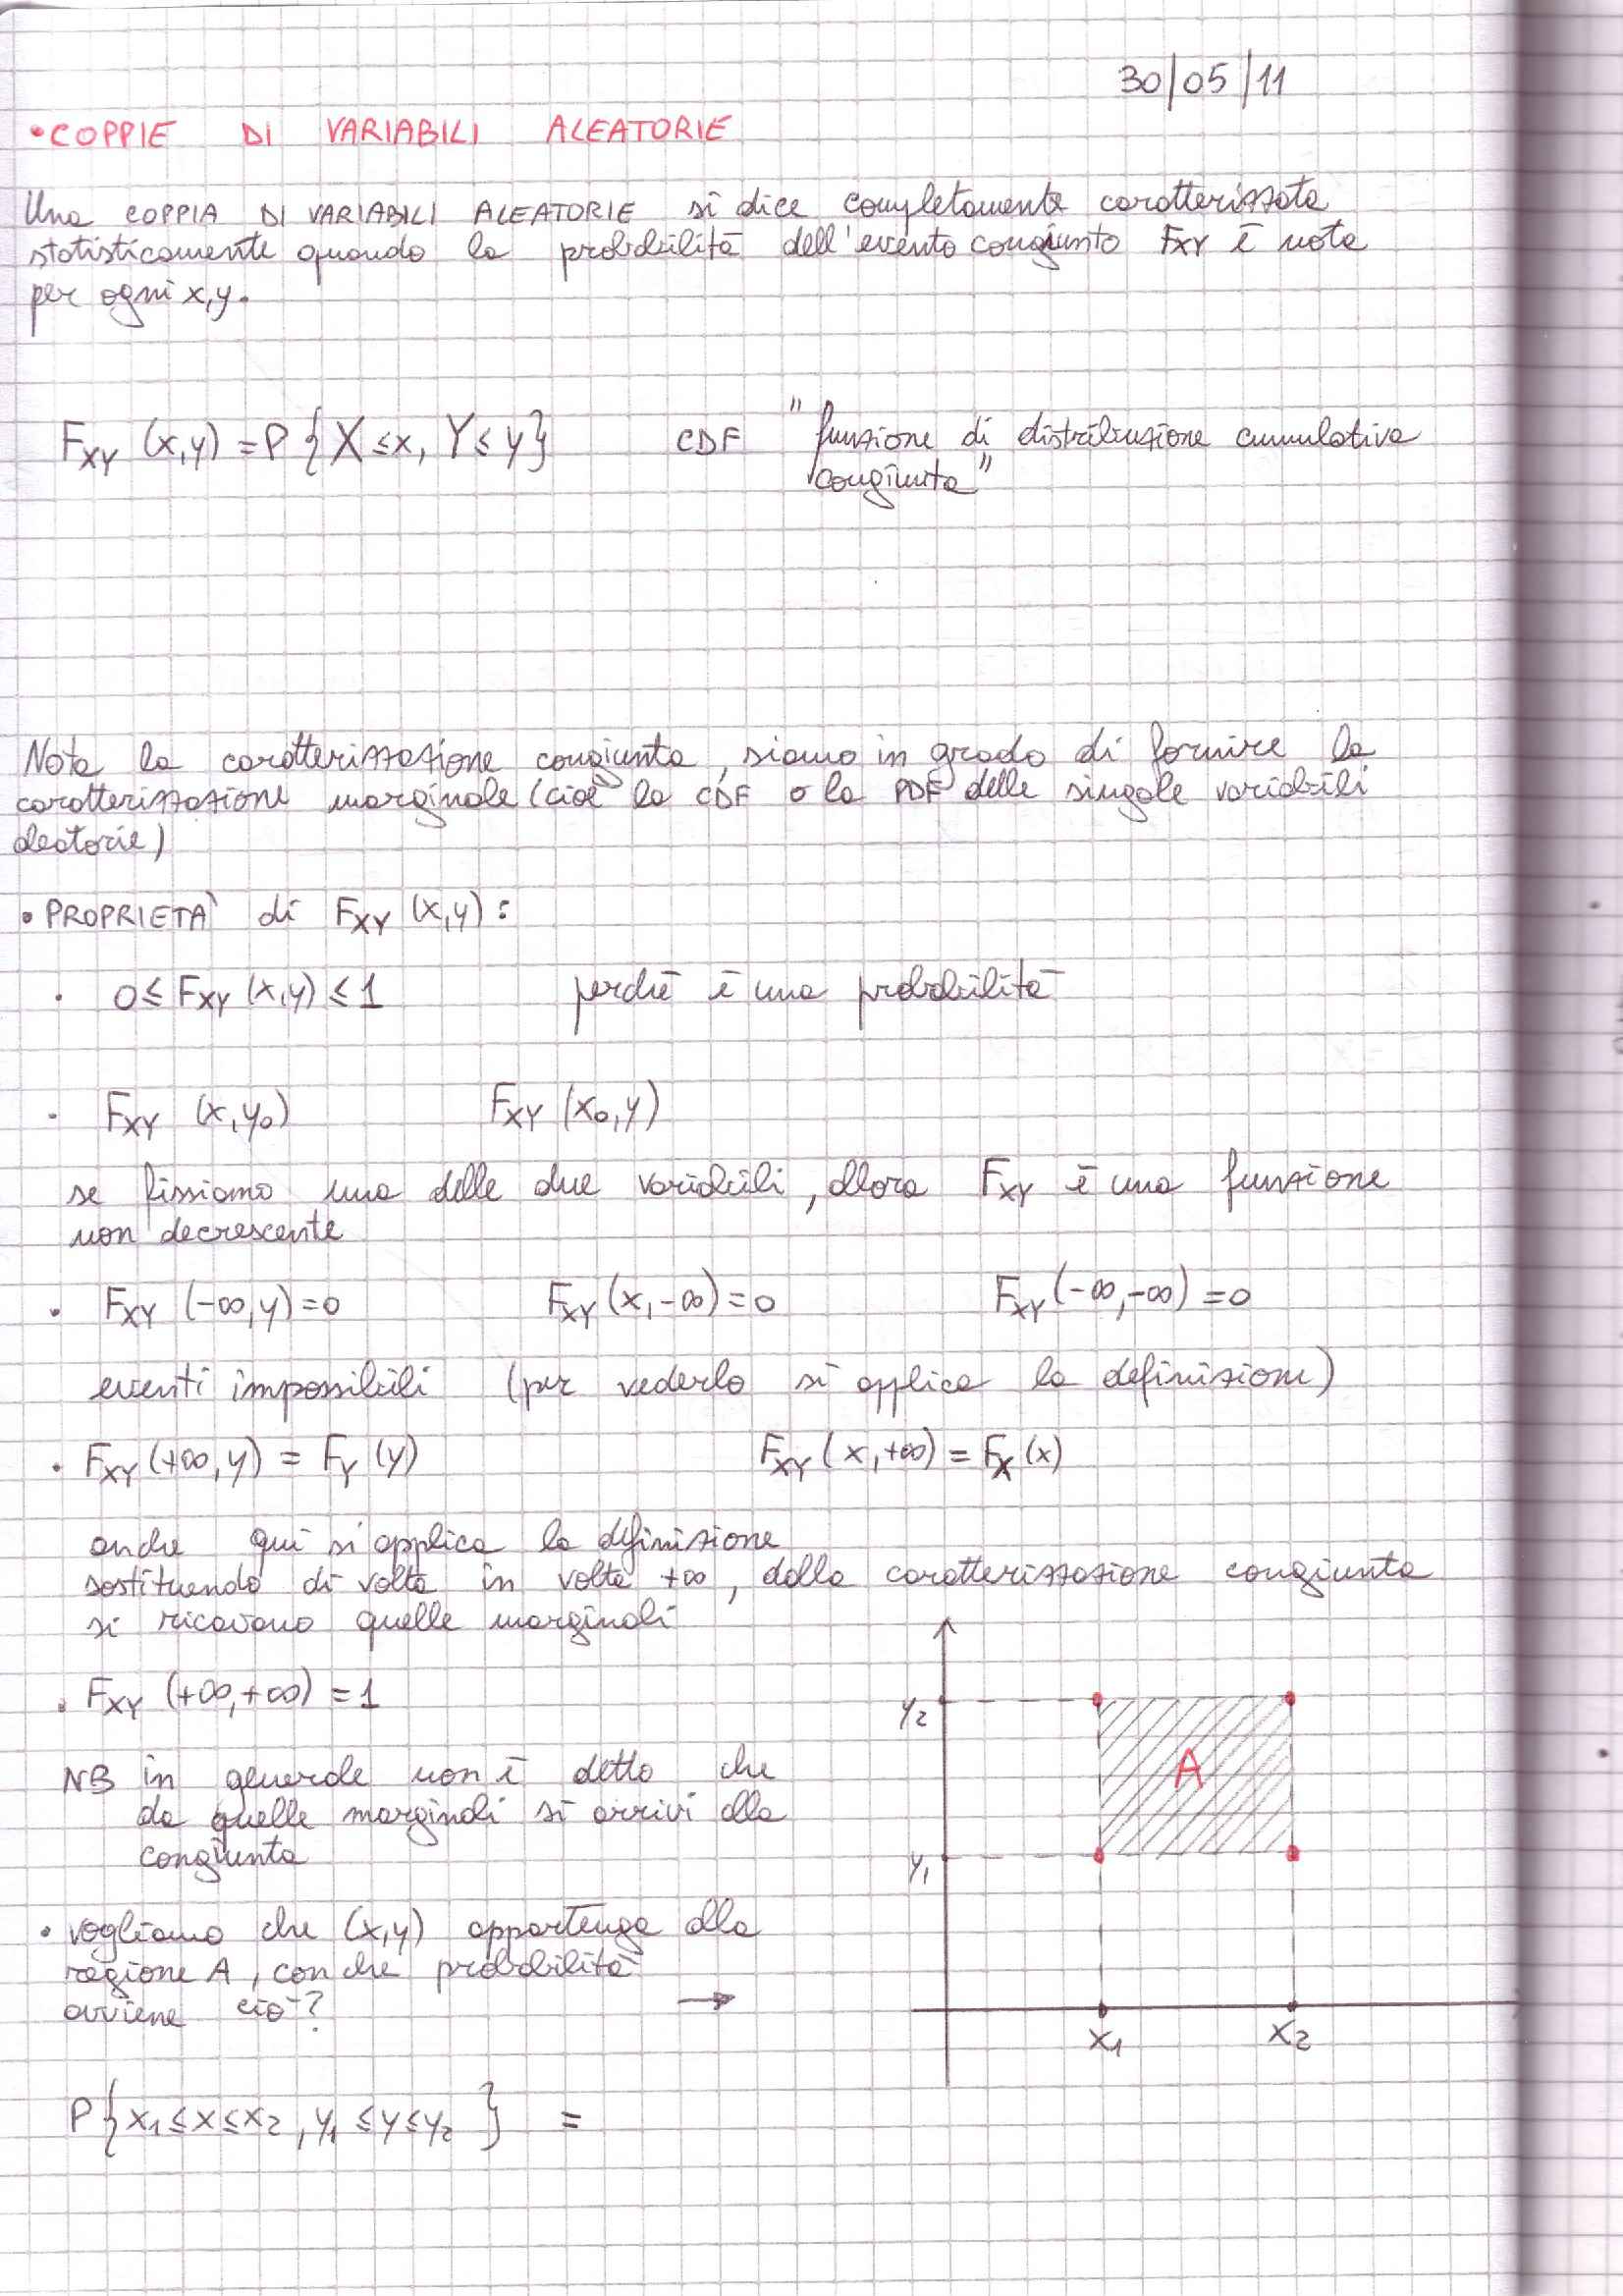 30/05/11
•COPPIE DI VARIABILI ALEATORIE
Una COPPIA DI VARIABILI ALEATORIE si dice completamente caratterizzata
statisticamente quando la probabilità dell'evento congiunto FXY è nota
per ogni x,y.
FXY (x,y) = P{X ≤ x, Y ≤ y} CDF "funzione di distribuzione cumulativa
congiunta"
Nota la caratterizzazione congiunta, siamo in grado di fornire la
caratterizzazione marginale (cioè la CDF o la PDF delle singole variabili
aleatorie)
• PROPRIETA' di FXY (x,y):
· 0 ≤ FXY (x,y) ≤ 1 perchè è una probabilità
· FXY (x,y0) FXY (x0,y)
se fissiamo una delle due variabili, allora FXY è una funzione
non decrescente
· FXY (-∞,y)=0 FXY (x,-∞)=0 FXY (-∞,-∞)=0
eventi impossibili (per vederlo si applica la definizione)
· FXY (+∞,y) = FY (y) FXY (x,+∞) = FX (x)
anche qui si applica la definizione
sostituendo di volta in volta +∞, dalla caratterizzazione congiunta
si ricavano quelle marginali
· FXY (+∞,+∞) = 1
NB in generale non è detto che
da quelle marginali si arrivi alla
congiunta
• vogliamo che (x,y) appartenga alla
regione A, con che probabilità
avviene ciò? →
y2
A
y1
x1 x2
P{x1 ≤ x ≤ x2, y1 ≤ y ≤ y2} =